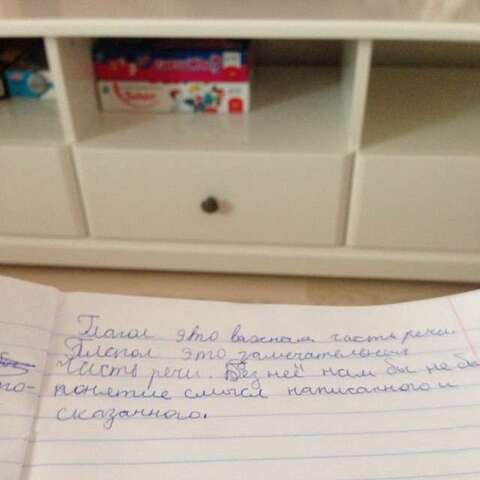 Глагол это важная часть речи.
Глагол это замечательная
часть речи. Без неё нам бы не бы
понятие смысл написанного и
сказанного.